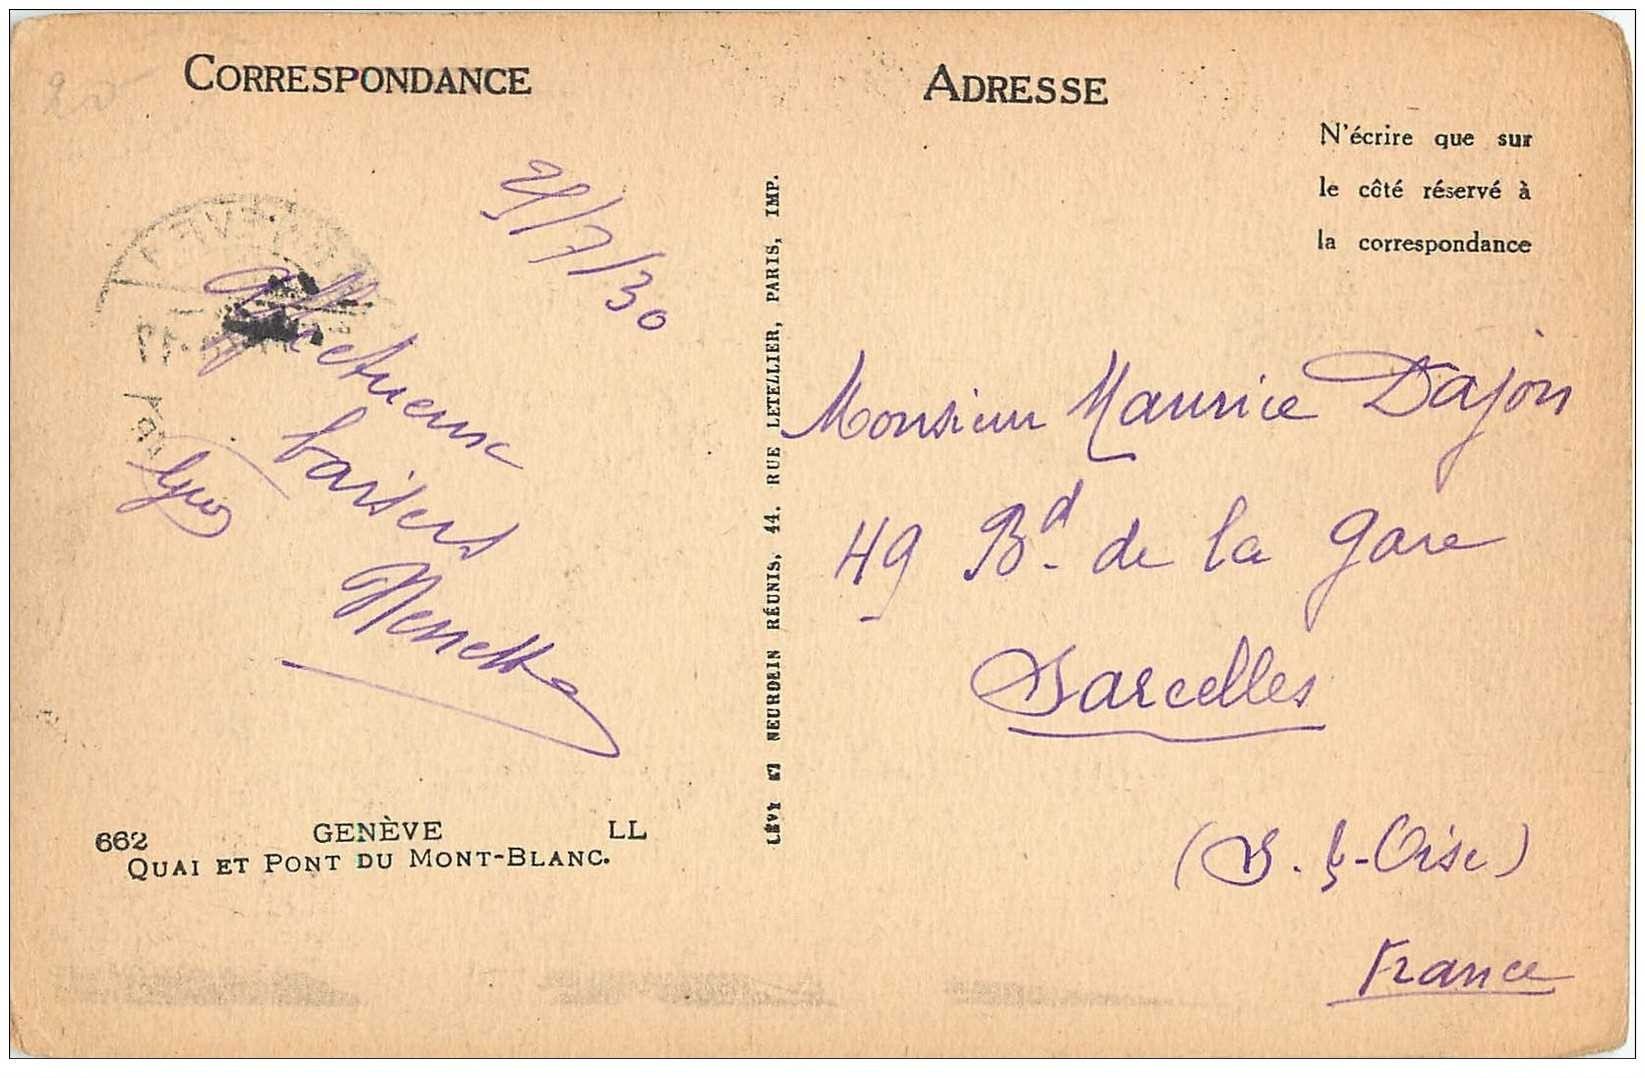 CORRESPONDANCE
ADRESSE
N'écrire que sur
le côté réservé à
la correspondance
20
/7/30
Affectueux
baisers
Nenette
LÉVY ET NEURDEIN RÉUNIS, 44. RUE LETELLIER, PARIS, IMP.
Monsieur Maurice Dajon
49 Bd de la Gare
Sarcelles
(S. & -Oise)
France
662 GENÈVE LL
QUAI ET PONT DU MONT-BLANC.